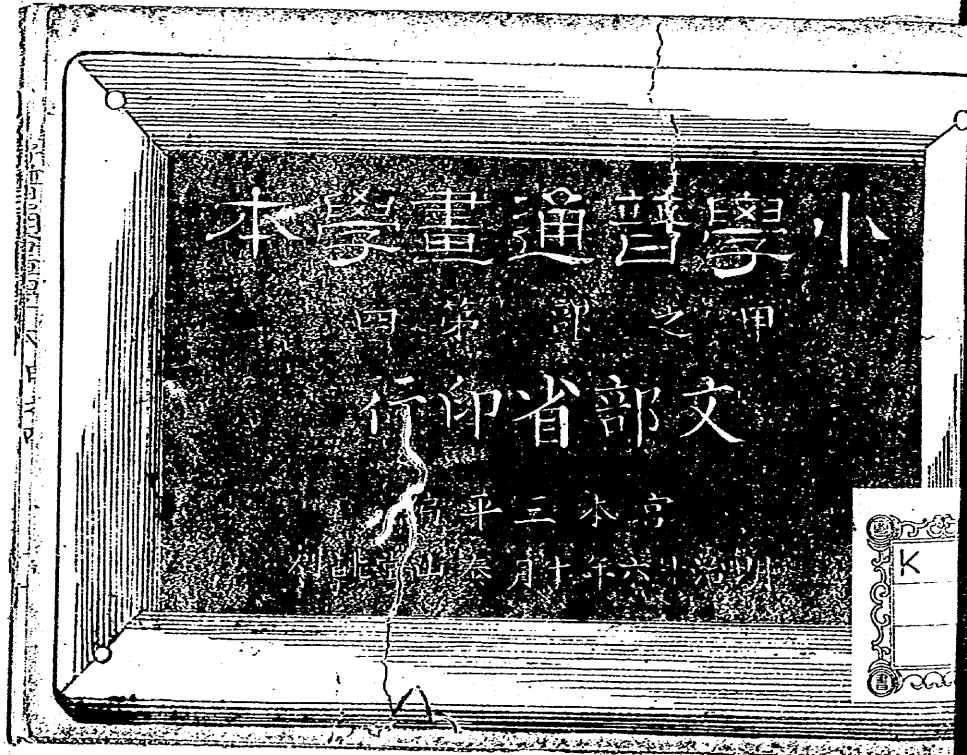 小學普通畫學本
甲之部第四
文部省印行
宮本三平
明治
六年十月
K